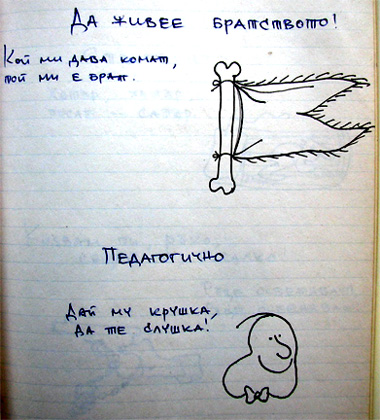 Да живее братството!
Кой ми дава комат,
той ми е брат.
Педагогично
Дай му крушка,
да те слушка!